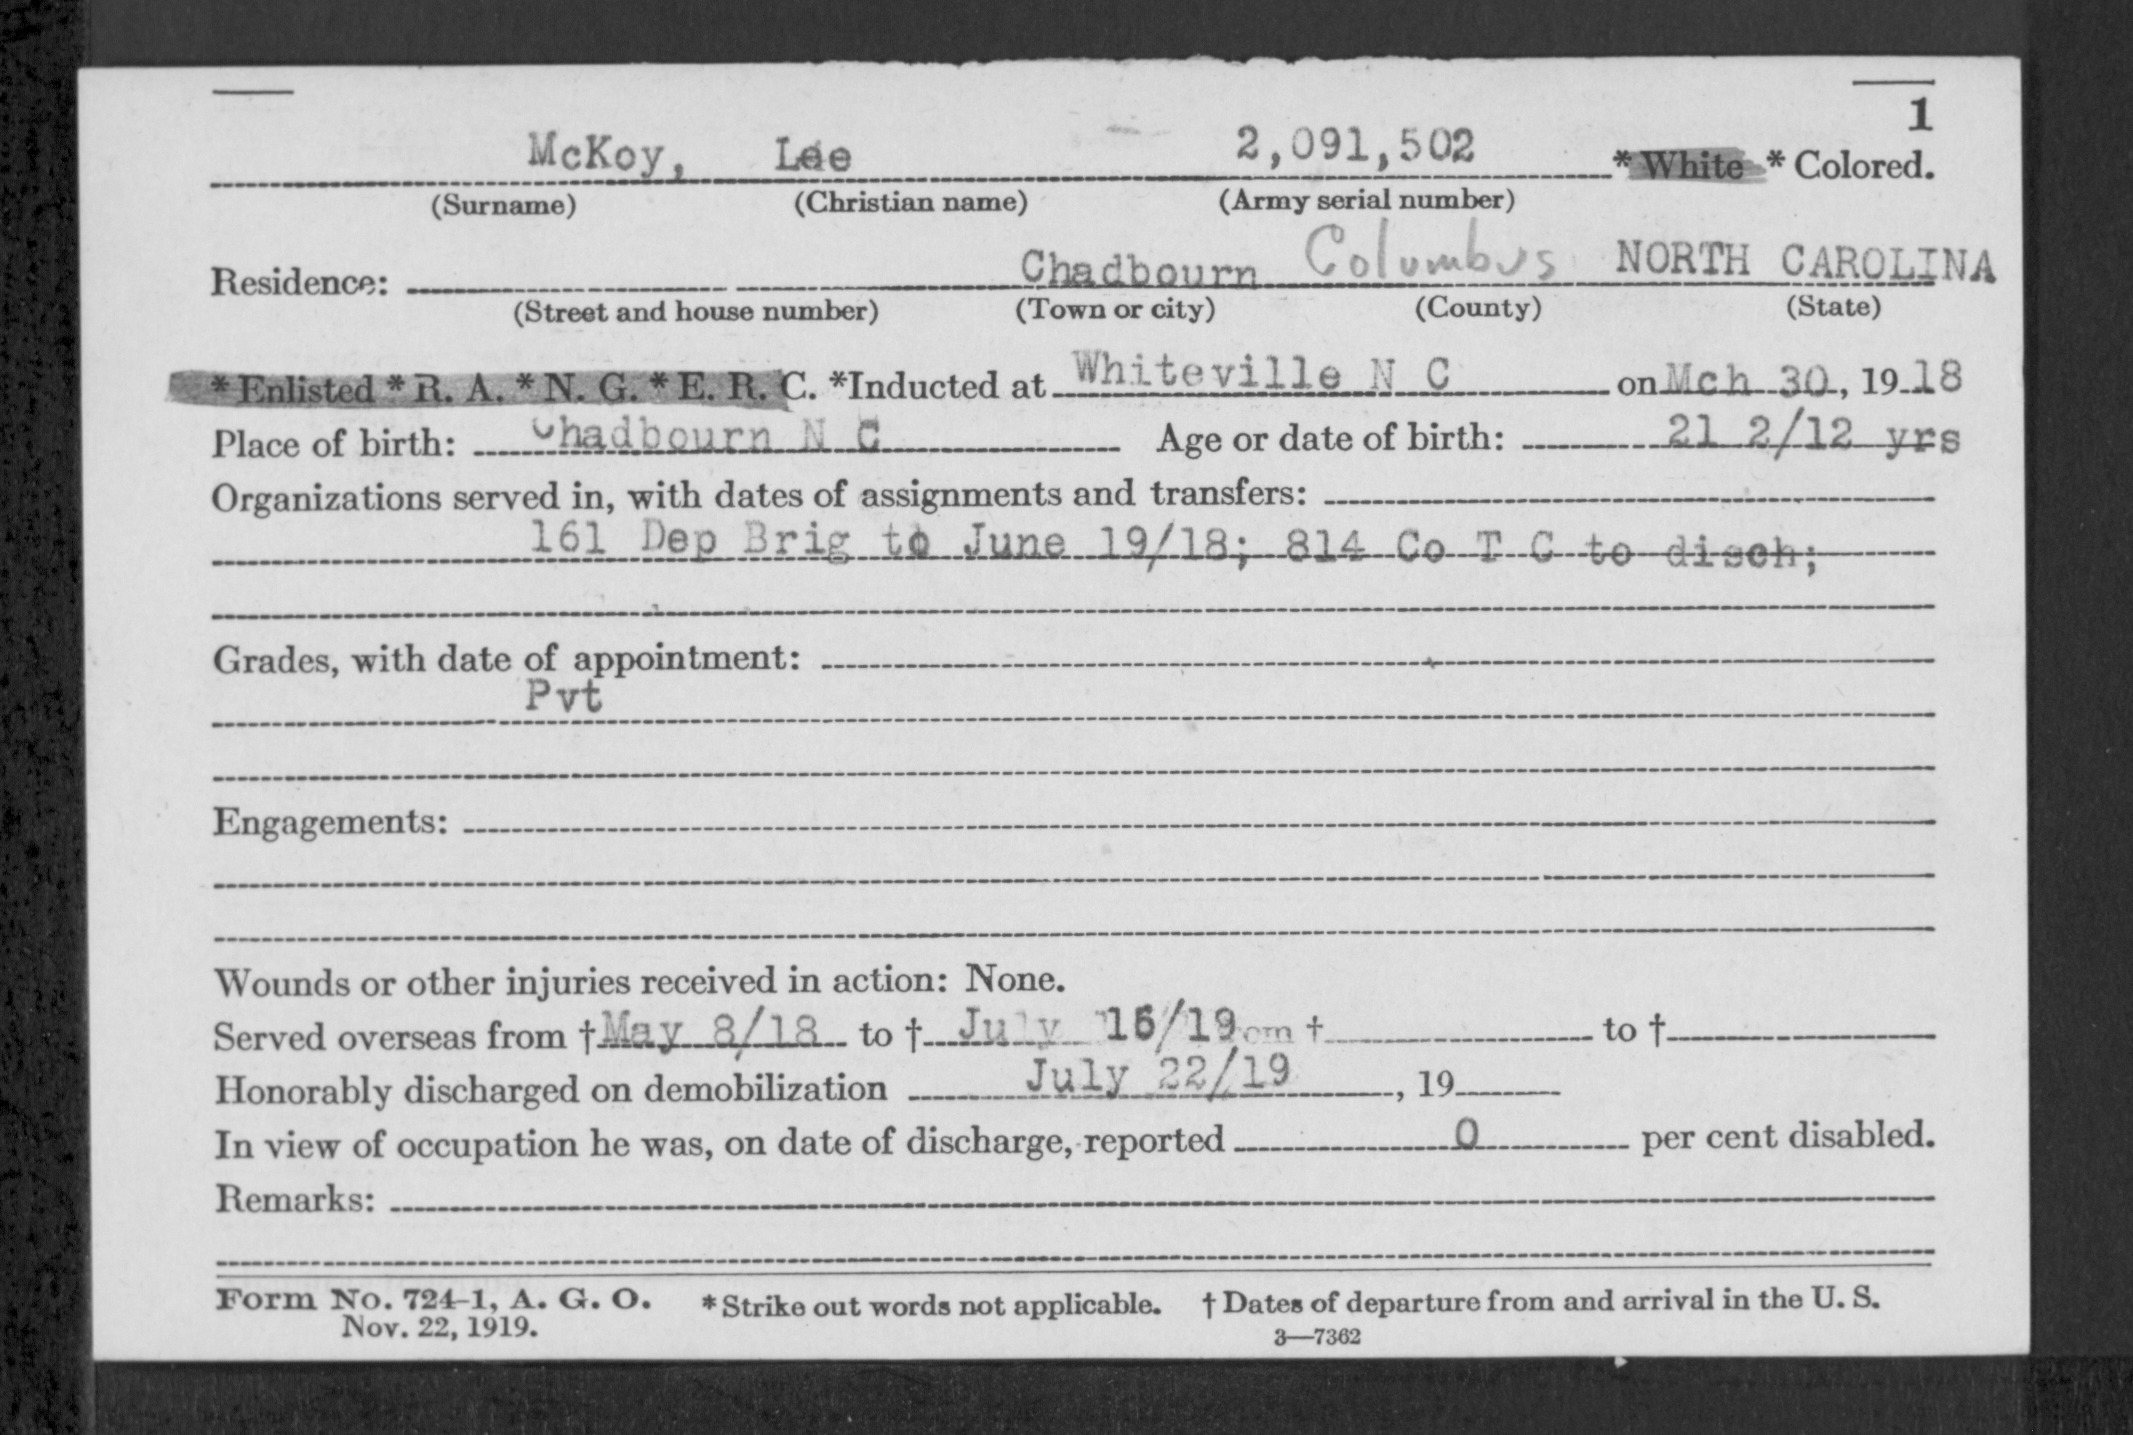 1
McKoy, Lee 2,091,502 * White * Colored.
(Surname) (Christian name) (Army serial number)
Residence: Chadbourn Columbus NORTH CAROLINA
(Street and house number) (Town or city) (County) (State)
* Enlisted * R. A. * N. G. * E. R. C. *Inducted at Whiteville N C on Mch 30, 19 18
Place of birth: Chadbourn N C Age or date of birth: 21 2/12 yrs
Organizations served in, with dates of assignments and transfers:
161 Dep Brig to June 19/18; 814 Co T C to disch;
Grades, with date of appointment:
Pvt
Engagements:
Wounds or other injuries received in action: None.
Served overseas from † May 8/18 to † July /19 † to †
Honorably discharged on demobilization July 22/19, 19
In view of occupation he was, on date of discharge, reported 0 per cent disabled.
Remarks:
Form No. 724-1, A. G. O. * Strike out words not applicable. † Dates of departure from and arrival in the U. S.
Nov. 22, 1919. 3—7362